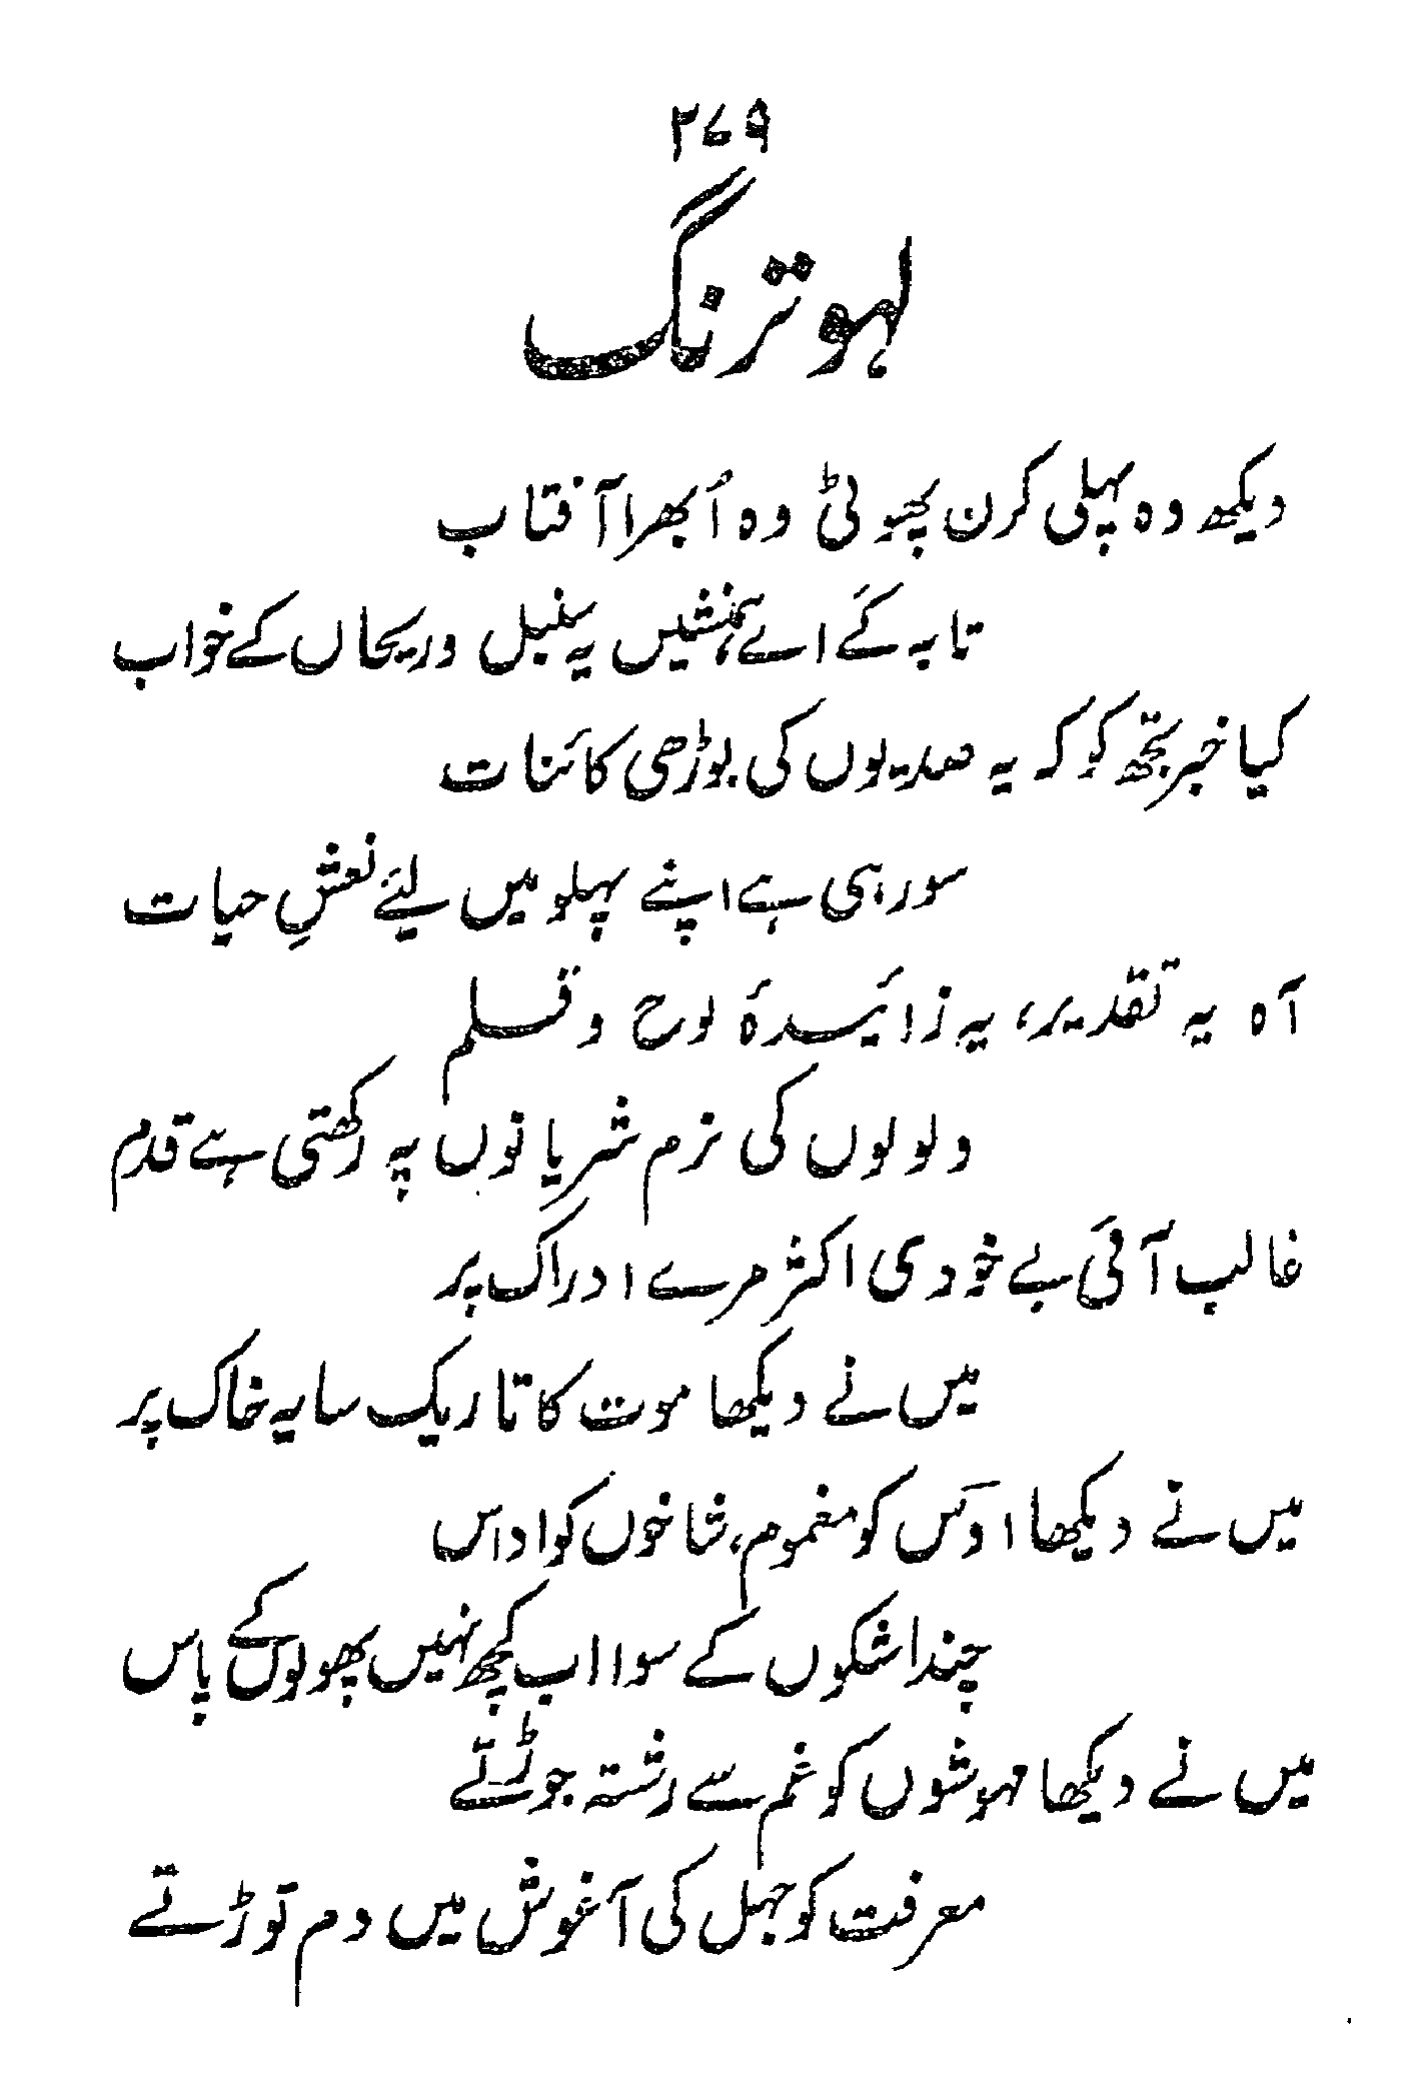 ۲۷۹
لہو ترنگ
دیکھ وہ پہلی کرن پھوٹی وہ اُبھرا آفتاب
تا بہ کَے اے ہمنشیں یہ سنبل و ریحاں کے خواب
کیا خبر تجھ کو کہ یہ صدیوں کی بوڑھی کائنات
سو رہی ہے اپنے پہلو میں لئے نعشِ حیات
آہ یہ تقدیر، یہ زائیدۂ لوح و قلم
ولولوں کی نرم شریانوں پہ رکھتی ہے قدم
غالب آئی بے خودی اکثر مرے ادراک پر
میں نے دیکھا موت کا تاریک سایہ خاک پر
میں نے دیکھا اوس کو مغموم، شاخوں کو اداس
چند اشکوں کے سوا اب کچھ نہیں پھولوں کے پاس
میں نے دیکھا مہوشوں کو غم سے رشتہ جوڑتے
معرفت کو جہل کی آغوش میں دم توڑتے